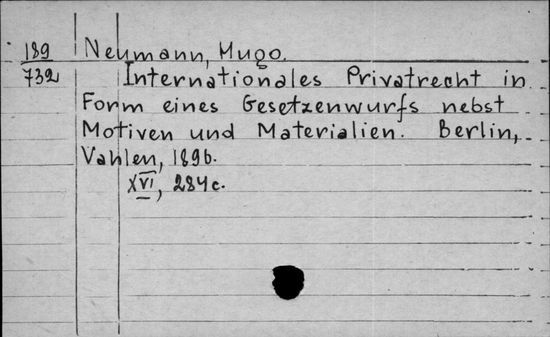 189 Neumann, Hugo.
732 Internationales Privatrecht in
Form eines Gesetzenwurfs nebst
Motiven und Materialien. Berlin,
Vahlen, 1896.
XVI, 284 c.